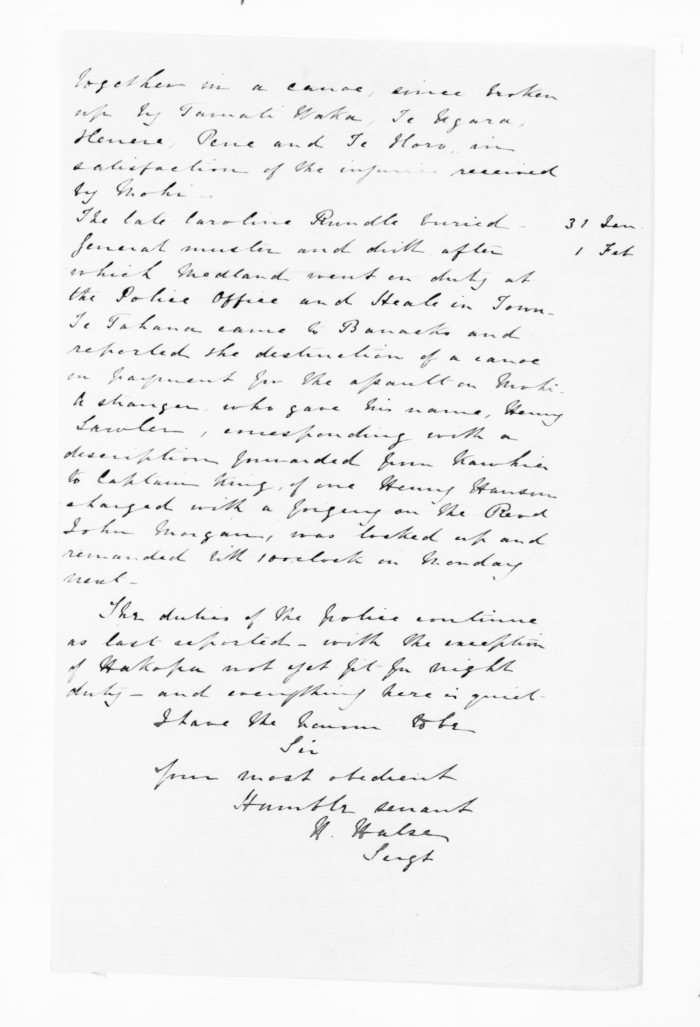 together in a canoe, since broken
up by Tamati Waka, Te Ngara,
Henere, Pene and Te Horo, in
satisfaction of the injuries received
by Mohi -
The late Caroline Rundle buried - 31 Jan.
General muster and drill after 1 Feb
which Medland went on duty at
the Police Office and Heale in Town -
Te Tahana came to Barracks and
reported the destruction of a canoe
in payment for the assault on Mohi -
A stranger, who gave his name, Henry
Lawler, corresponding with a
description forwarded from Kawhia
to Captain King, of one Henry Hanson
charged with a forgery on the Revd
John Morgan, was locked up and
remanded till 10 o'clock on Monday
next -
The duties of the police continue
as last reported - with the exception
of Hakopa not yet fit for night
duty - and everything here is quiet -
I have the honour to be
Sir
Your most obedient
Humble servant
H. Halse
Sergt